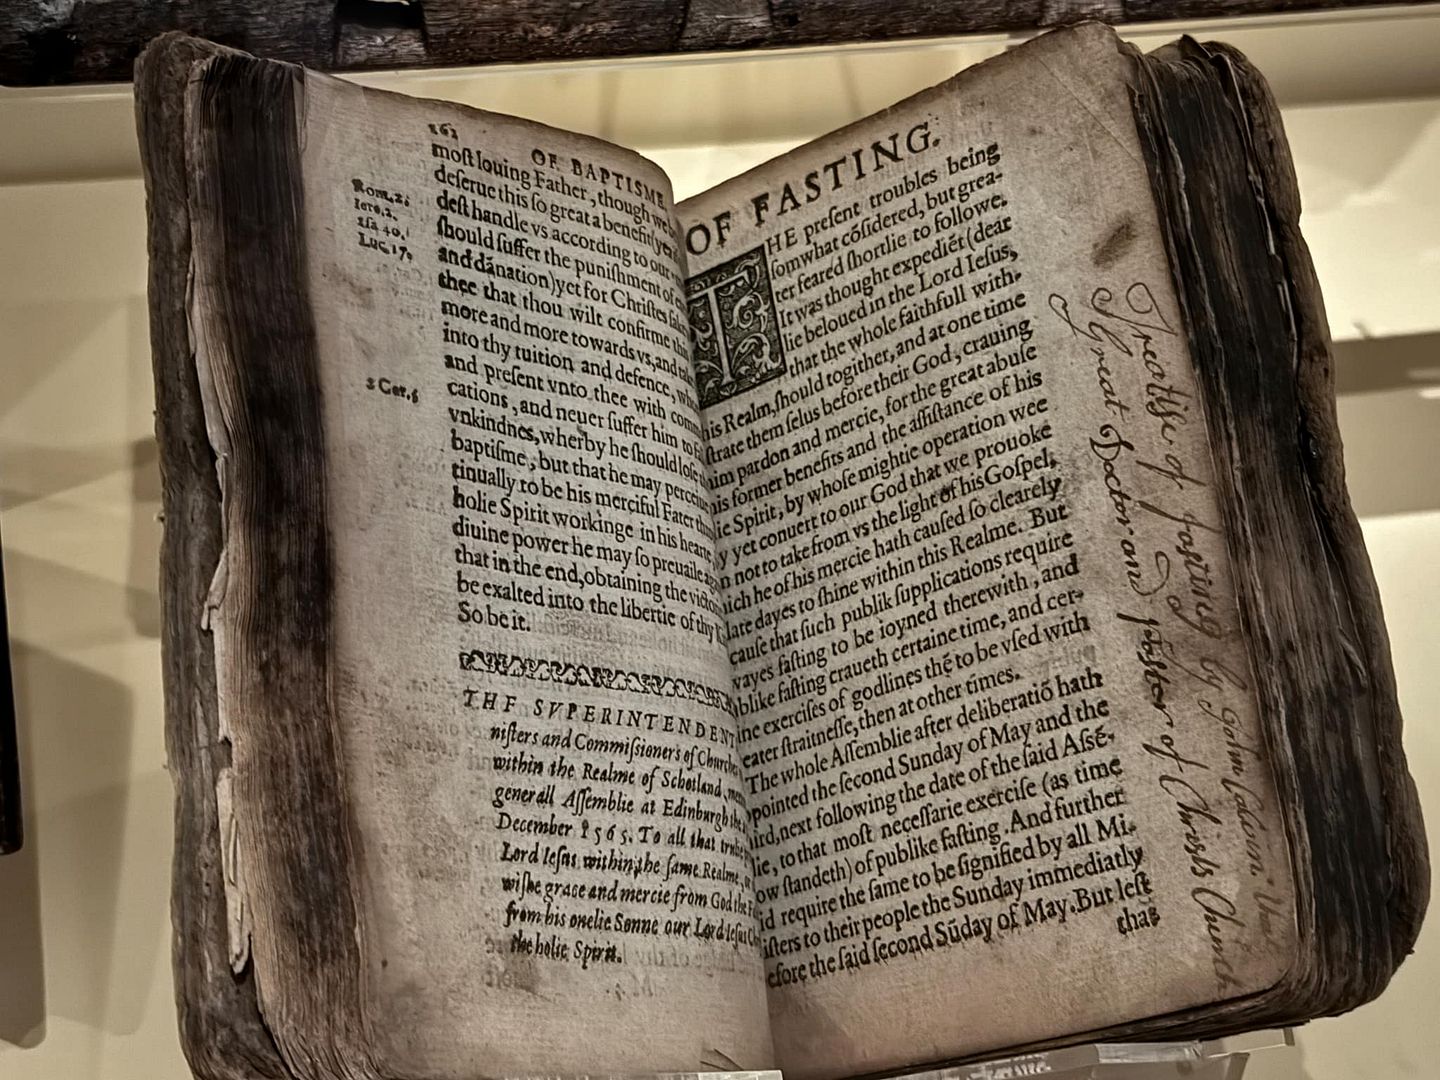 162
OF BAPTISME.
most louing Father, though we
deserue this so great a benefit (yea
dest handle vs according to our
should suffer the punishment of
and dānation) yet for Christes sake
thee that thou wilt confirme this
more and more towards vs, and take
into thy tuition and defence, who
and present vnto thee with comm
cations, and neuer suffer him to fall
vnkindnes, wherby he should lose
baptisme, but that he may perceiue
tinually to be his merciful Fater thr
holie Spirit workinge in his hearte,
diuine power he may so preuaile aga
that in the end, obtaining the victor
be exalted into the libertie of thy
So be it.
Rom. 2.
Iere. 2.
Isa 40.
Luc. 17.
2 Cor. 5
THE SVPERINTENDENT
nisters and Commissioners of Churche
within the Realme of Schotland,
generall Assemblie at Edinburgh the
December 1565. To all that trulie
Lord Iesus within the same Realme,
wishe grace and mercie from God the Fa
from his onelie Sonne our Lord Iesus
the holie Spirit.
OF FASTING.
THE present troubles being
somwhat cōsidered, but grea-
ter feared shortlie to followe.
It was thought expediēt (dear
lie beloued in the Lord Iesus,
that the whole faithfull with-
his Realm, should togither, and at one time
strate them selus before their God, crauing
him pardon and mercie, for the great abuse
his former benefits and the assistance of his
lie Spirit, by whose mightie operation wee
y yet conuert to our God that we prouoke
n not to take from vs the light of his Gospel,
hich he of his mercie hath caused so clearely
late dayes to shine within this Realme. But
cause that such publik supplications require
wayes fasting to be ioyned therewith, and
blike fasting craueth certaine time, and cer-
ine exercises of godlines thē to be vsed with
eater straitnesse, then at other times.
The whole Assemblie after deliberatiō hath
pointed the second Sunday of May and the
ird, next following the date of the said Assē-
lie, to that most necessarie exercise (as time
ow standeth) of publike fasting. And further
id require the same to be signified by all Mi-
isters to their people the Sunday immediatly
efore the said second Sūday of May. But lest
that
Treatise of fasting by John Calvin
Great Doctor and Pastor of Christs Church